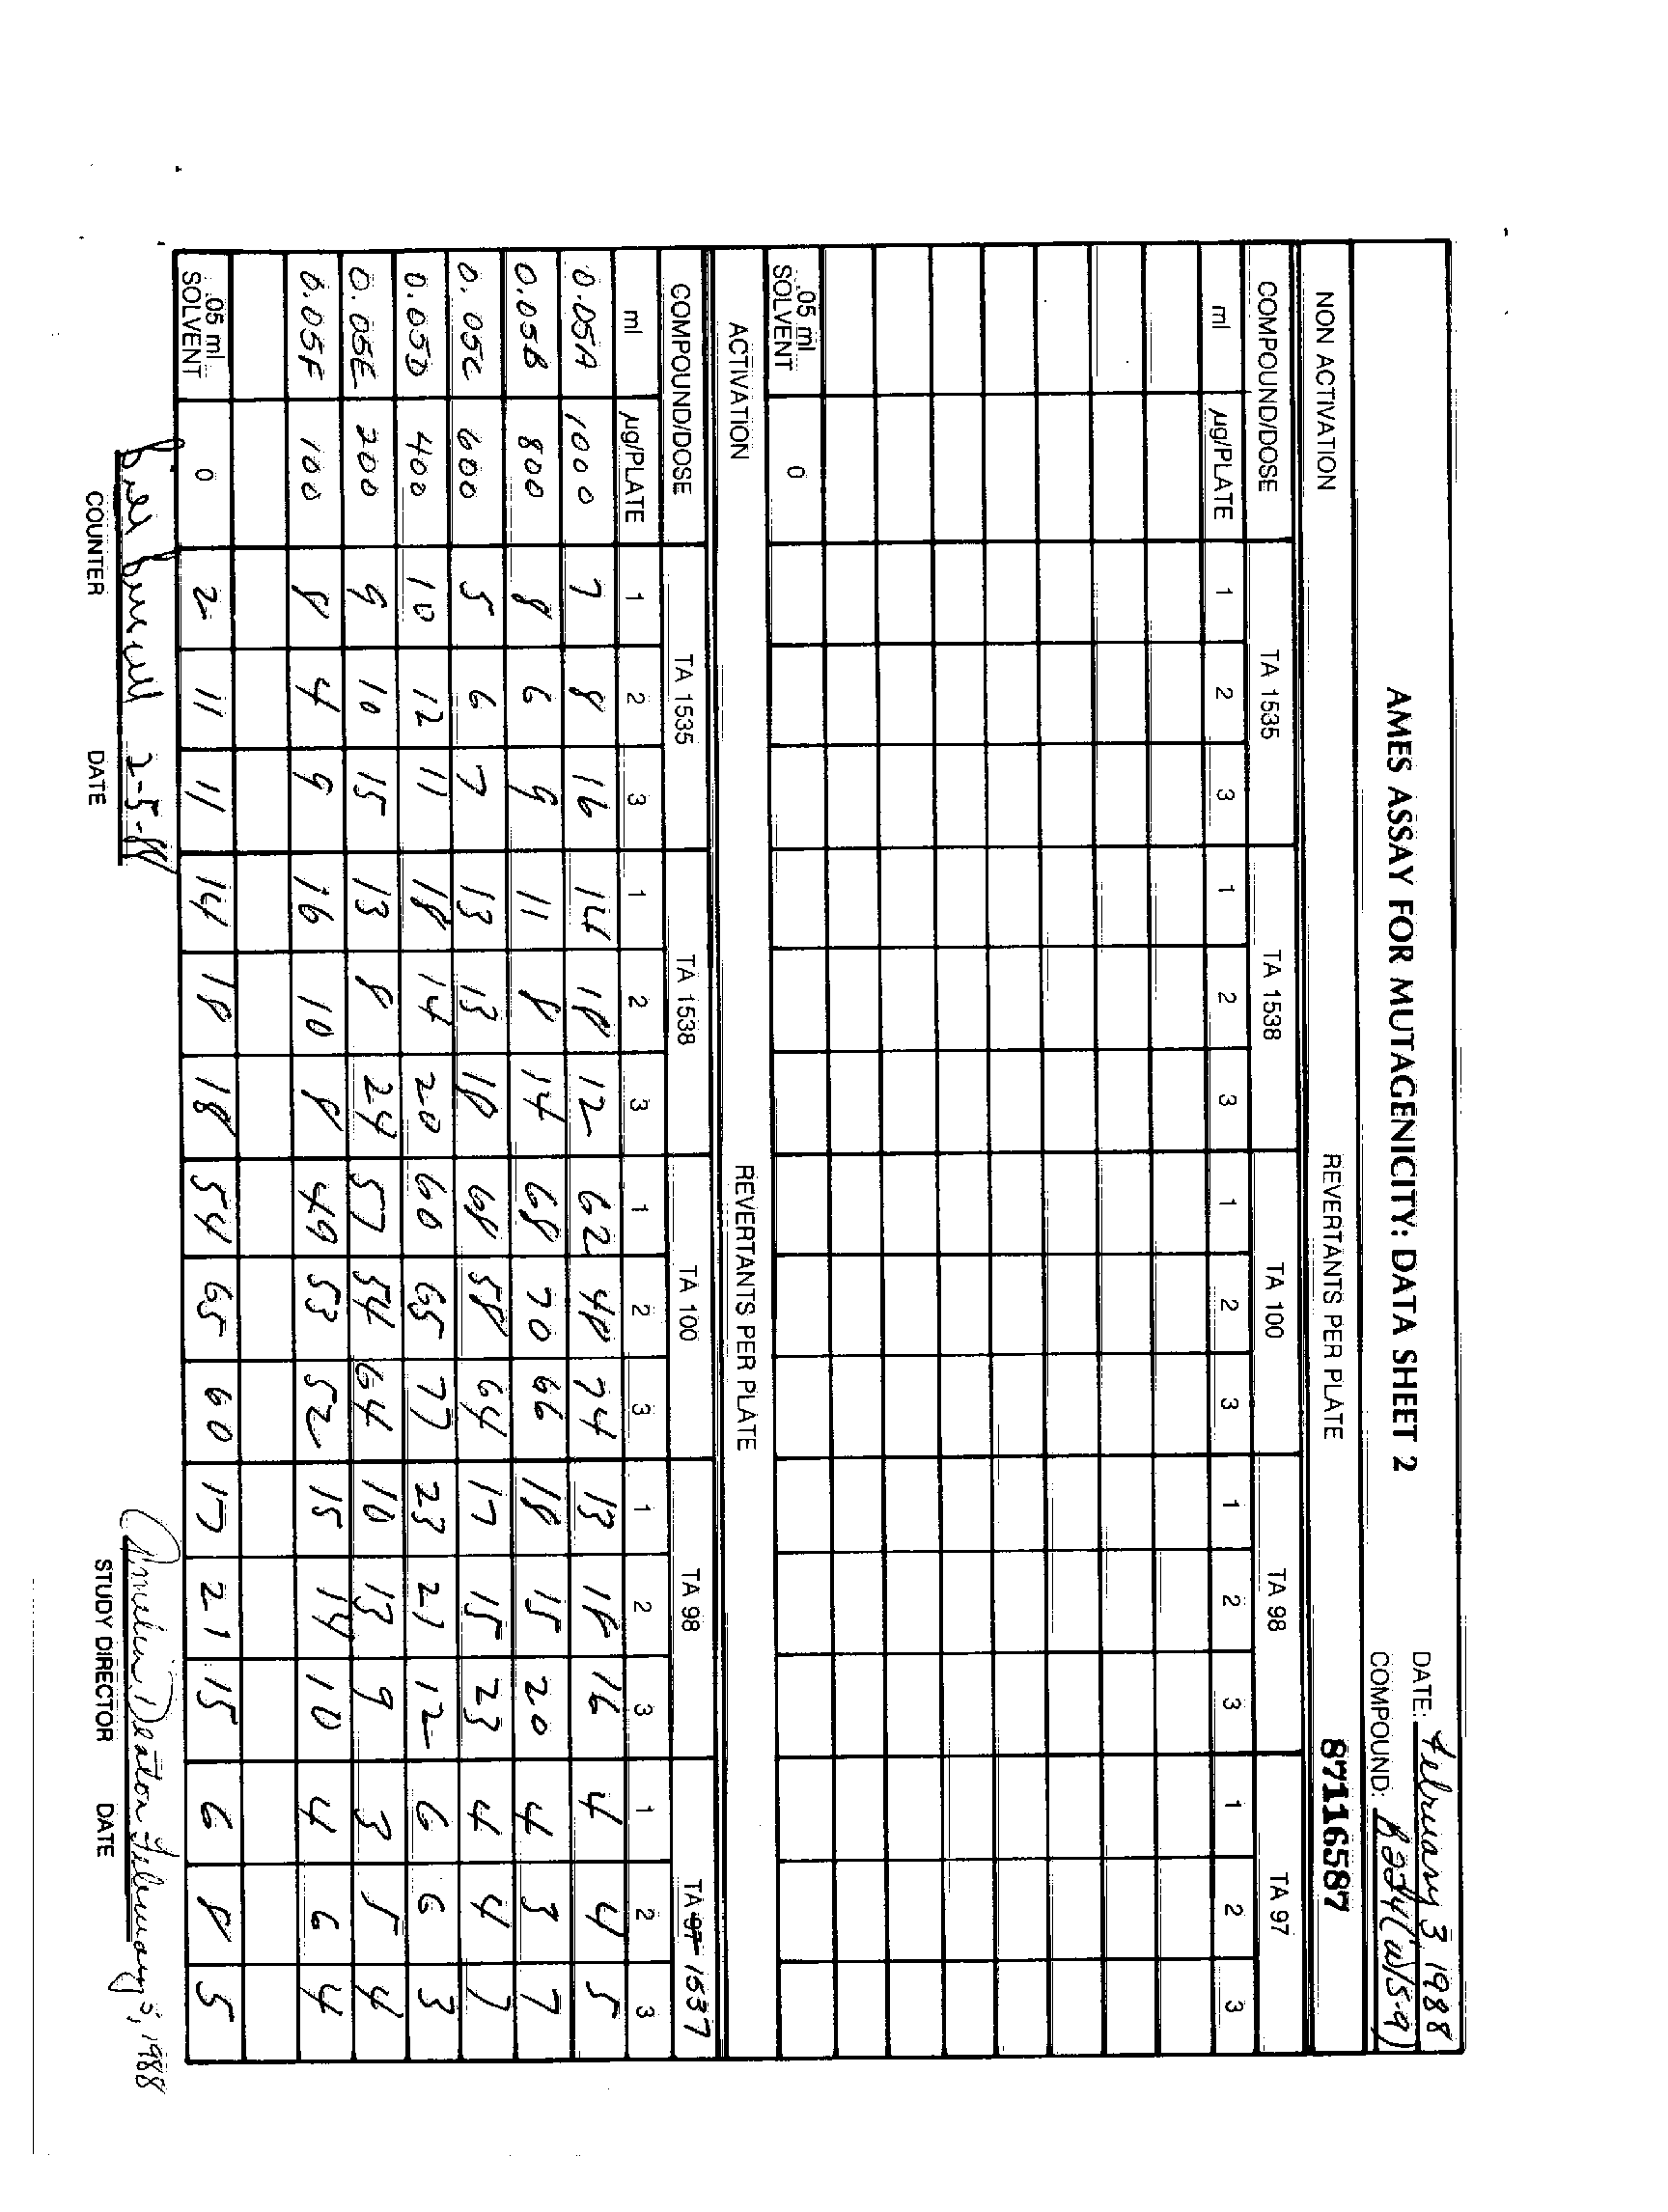 AMES ASSAY FOR MUTAGENICITY: DATA SHEET 2
DATE: February 3 1988
COMPOUND: B234 (W/S-9)
87116587
NON ACTIVATION REVERTANTS PER PLATE
COMPOUND/DOSE TA 1535 TA 1538 TA 100 TA 98 TA 97
ml µg/PLATE 1 2 3 1 2 3 1 2 3 1 2 3 1 2 3
.05 ml
SOLVENT 0
ACTIVATION REVERTANTS PER PLATE
COMPOUND/DOSE TA 1535 TA 1538 TA 100 TA 98 TA 97 1537
ml µg/PLATE 1 2 3 1 2 3 1 2 3 1 2 3 1 2 3
0.05A 1000 7 8 16 14 18 12 62 48 74 13 18 16 4 4 5
0.05B 800 8 6 9 11 8 14 68 70 66 18 15 20 4 3 7
0.05C 600 5 6 7 13 13 18 68 58 64 17 15 23 4 4 7
0.05D 400 10 12 11 18 14 20 60 65 77 23 21 12 6 6 3
0.05E 200 9 10 15 13 8 24 57 54 64 10 13 9 3 5 4
0.05F 100 8 4 9 16 10 8 49 53 52 15 14 10 4 6 4
.05 ml
SOLVENT 0 2 11 11 14 18 18 54 65 60 17 21 15 6 8 5
Bill 2-5-88 Deaton February 5, 1988
COUNTER DATE STUDY DIRECTOR DATE